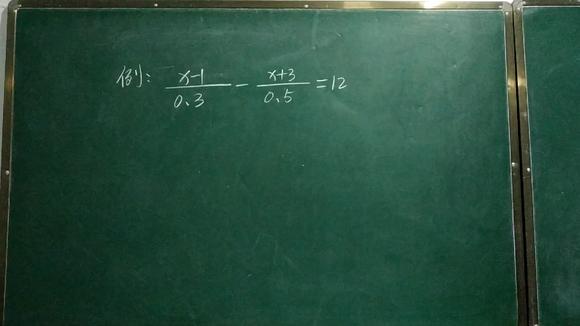 例: (x-1)/0.3 - (x+3)/0.5 = 12